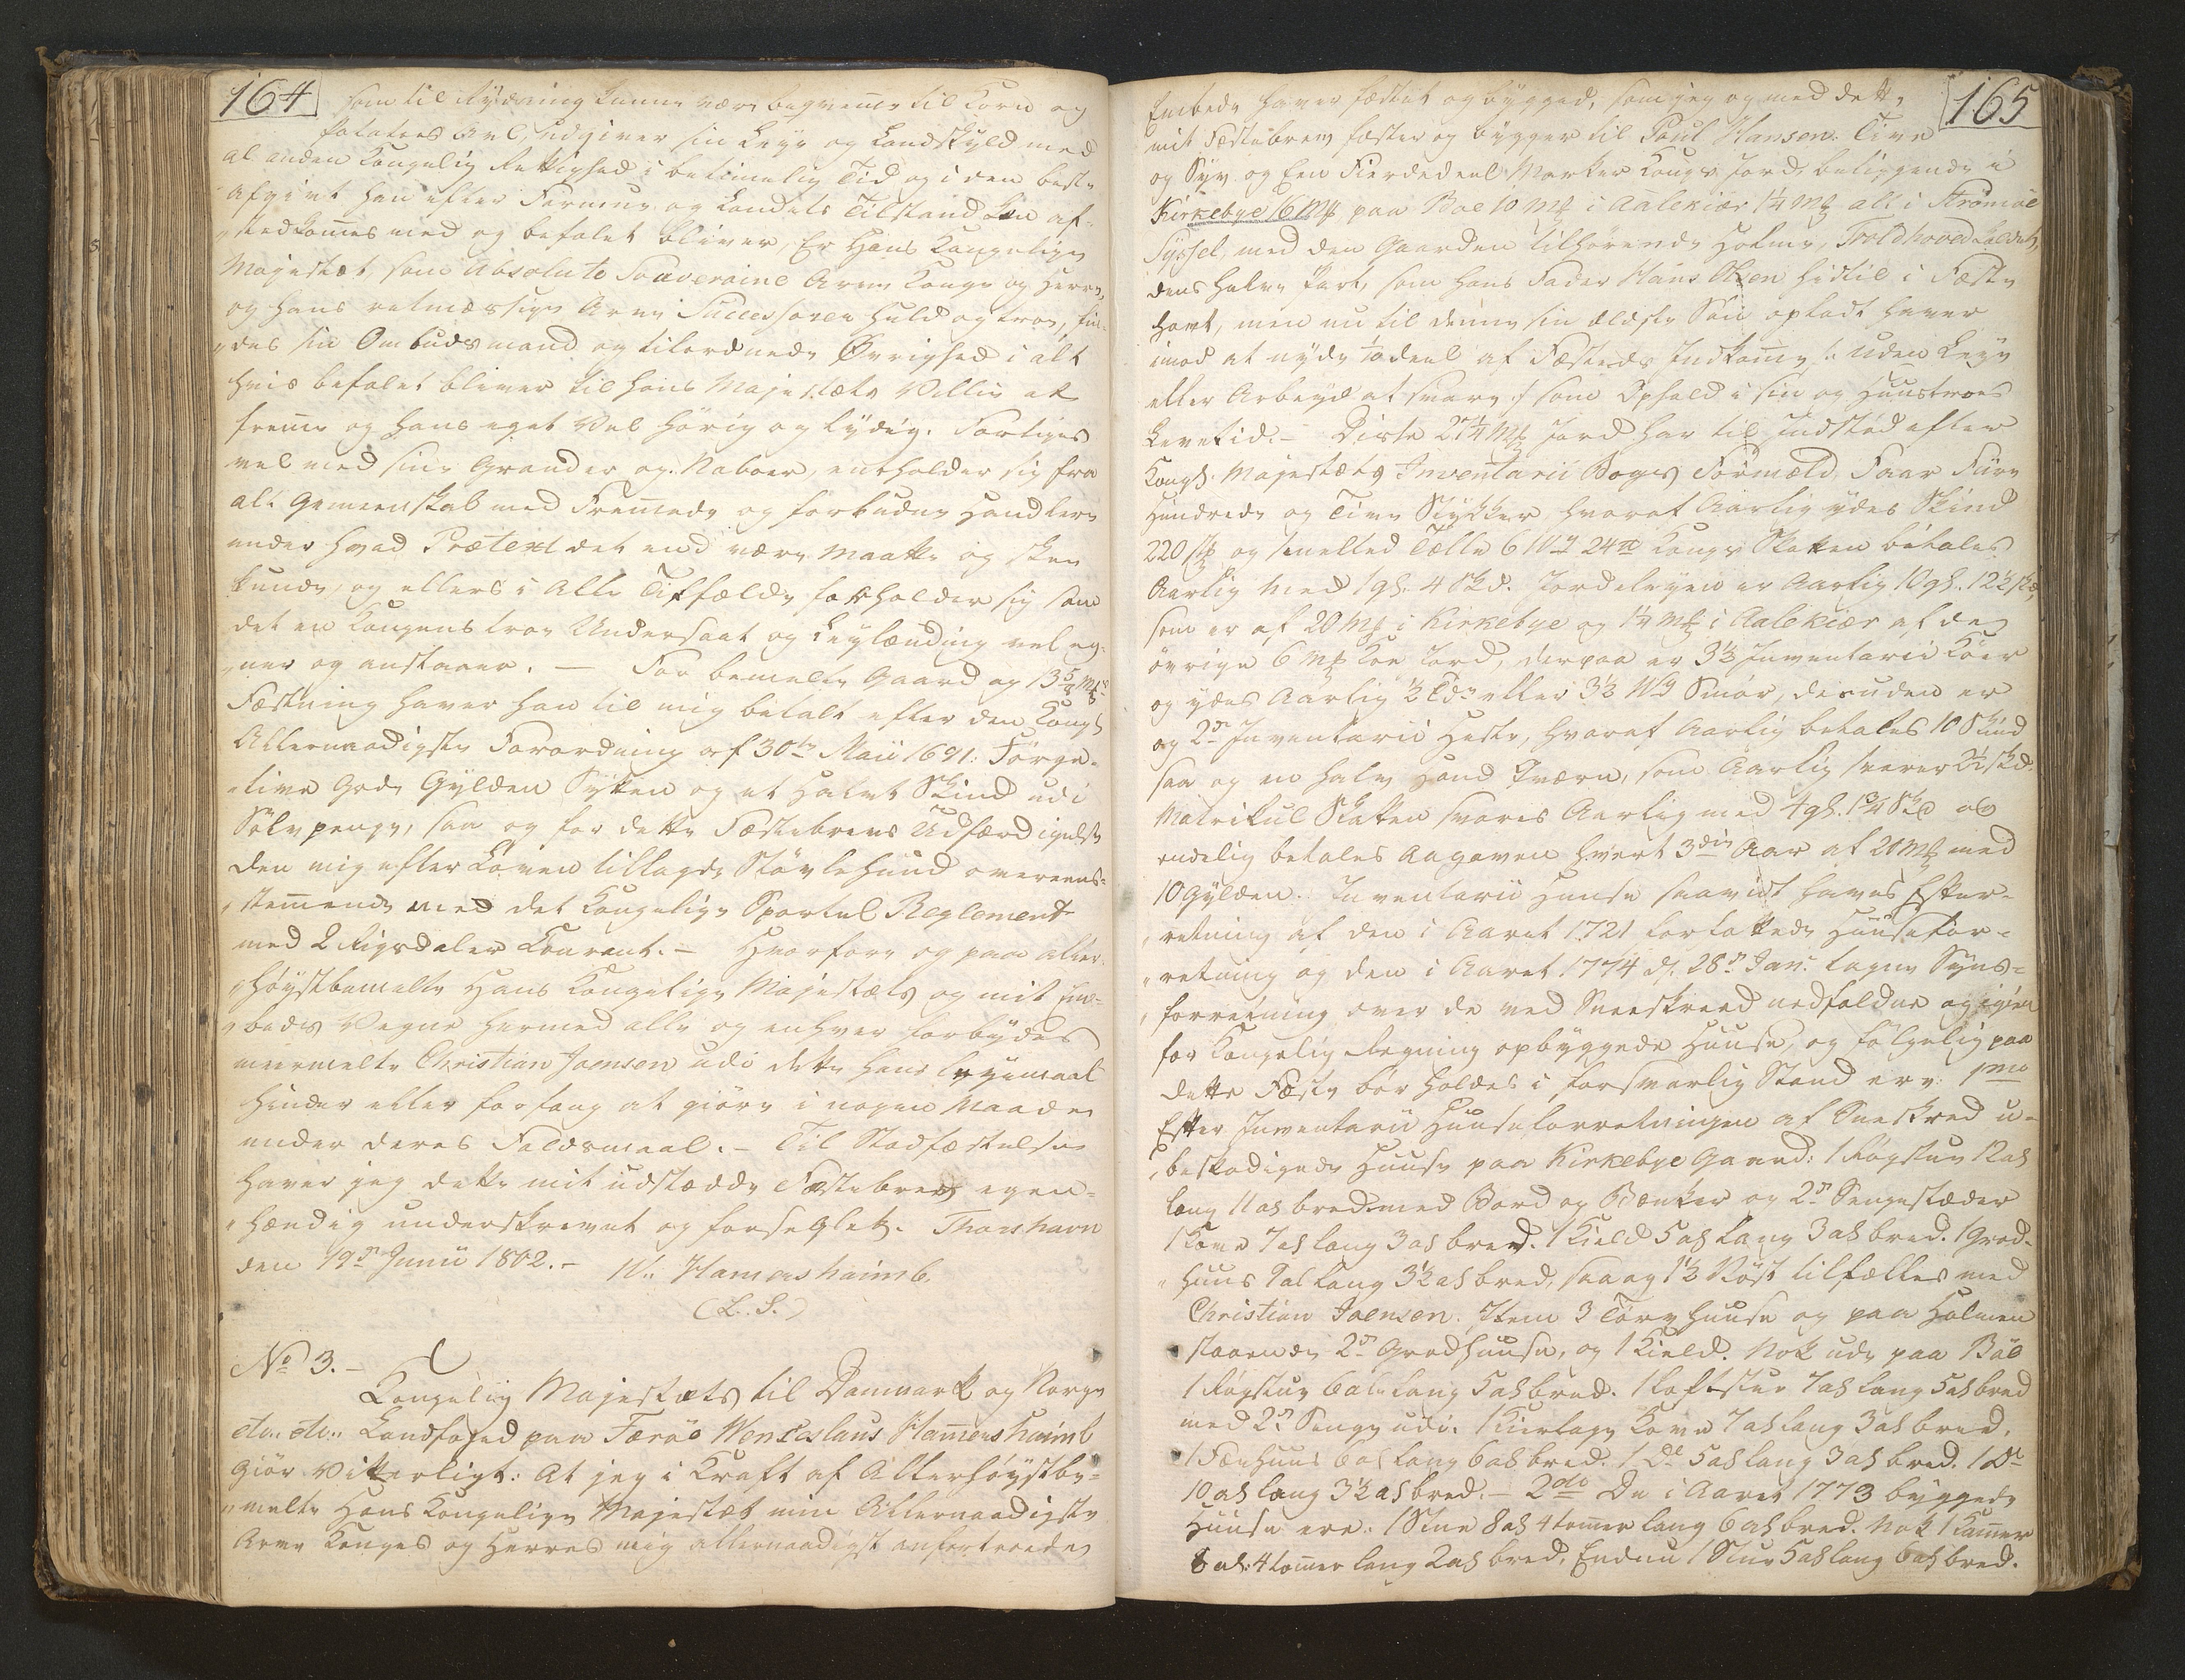 164
som til Rydning kunne være beqvemme til Korn og
Potatoes Avl, udgiver sin Leye og Landskyld med
al anden Kongelig Rettighed i betimelig Tid og i den beste
Afgivt han efter Formue og Landets Tilstand kan af-
„stedkommes med og befalet bliver, Er Hans Kongelige
Majestæt som Absolute Souveraine Arve Konge og Herre,
og hans retmæssige Arve Successorer huld og troe, sin-
„des sin Ombudsmand og tilordnede Øvrighed i alt
hvis befalet bliver til Hans Majestæts Villie at
fremme og hans eget Vel hörig og lydig. Forliges
vel med sine Grander og Naboer, entholder sig fra
alt Gemeenskab med Fremmede og forbudne Handlere
under hvad Prætext det end være maatte og skee
kunde, og ellers i Alle Tilfælde forholder sig som
det en Kongens troe Undersaat og Leylænding vel eg-
„ner og anstaaer. — For bemelte Gaard og 13 5/8 Mk
Fæstning haver han til mig betalt efter den Kongl.
Allernaadigste Forordning af 30te Maii 1691: Förge-
„tive Gode Gylden Sytten og et Halvt Skind udi
Sölvpenge, saa og for dette Fæstebrevs Udfærdigelse
den mig efter Loven tillagde Stövlehund overeens-
„stemmende med det Kongelige Sportel Reglement
med 2 Rigsdaler Courant. – Hvorfore og paa aller-
„høystbemelte Hans Kongelige Majestæts og mit Em-
„beds Vegne hermed alle og enhver forbydes
meermelte Christian Joensen udi dette hans Leyemaal
Hinder eller Forfang at giöre i nogen Maade
under deres Faldsmaal. – Til Stadfæstelse
haver jeg dette mit udstædde Fæstebrev egen-
„hændig underskrevet og forseglet. Thorshavn
den 19de Junii 1802. – W: Hamershaimb.
(L. S.)
No 3. –
Kongelig Majestæts til Danmark og Norge
etc. etc. Landfoged paa Færöe Wenceslaus Hamershaimb
Giör Vitterligt: At jeg i Kraft af Allerhöystbe-
„melte Hans Kongelige Majestæt min Allernaadigste
Arve Konges og Herres mig allernaadigst anfortroede
165
Embede haver fæstet og bygged, som jeg og med dette
mit Fæstebrev fæster og bygger til Poul Hansen Tive
og Syv og Een Fierdedeel Marker Kongs Jord, beliggende i
Kirkebye 16 Mk paa Boe 10 Mk i Aalekiær 1¼ Mk alt i Strömöe
Syssel, med den Gaarden tilhörende Holme, Troldhoved kaldet,
dens halve Part, som hans Fader Hans Olsen hidtil i Fæste
havt, men nu til denne sin ældste Sön opladt haver
imod at nyde 1/10 deel af Fæstets Indkomme /: uden Leye
eller Arbeyd at svare :/ som Ophold i sin og Huustroes
Levetid. – Disse 27¼ Mk Jord har til Indstæd efter
Kongl. Majestæts Inventarii Bogs Formæld, Faar Fiire
Hundrede og Tive Stykker hvoraf Aarlig ydes Skind
220 Stk og smelted Tælle 6 Wog 24 Kongs Skatten betales
Aarlig med 1 gl. 4 Skd. Jordeleyen er Aarlig 10 gl. 12½ Skd,
som er af 20 Mk i Kirkebye og 1¼ Mk i Aalekiær af de
övrige 6 Mk Koe Jord, derpaa er 3½ Inventarii Köer
og ydes Aarlig ½ Tde eller 3½ Wog Smör, desuden er
og 2de Inventarii Heste, hvoraf Aarlig betales 10 Skind
saa og en halv Haand Qværn, som Aarlig svarer 2½ Skd.
Matrikul Skatten svares Aarlig med 4 gl. 13¼ Skd og
endelig betales Aagaven hvert 3die Aar af 20 Mk med
10 Gylden. Inventarii Huuse saavidt haves Efter-
„retning af den i Aaret 1721 forfattede Huusefor-
„retning og den i Aaret 1774 d. 28de Janv. tagne Syns-
„forretning over de ved Sneeskreed nedfaldne og igien
for Kongelig Regning opbyggede Huuse, og fölgelig paa
dette Fæste bör holdes i forsvarlig Stand ere: 1mo
Efter Inventarii Huuseforretningen af Sneskred u-
„beskadigede Huuse paa Kirkebye Gaard: 1 Rögstue 12 al
lang 11 al bred med Bord og Bænker og 2de Sengestæder
1 Kove 7 al lang 3 al bred. 1 Kield 5 al lang 3 al bred. 1 Grod-
„huus 9 al lang 3½ al bred, saa og 1½ Nöst tilfælles med
Christian Joensen. Item 3 Törv Huuse og paa Holmen
staaende 2de Grodhuuse, og 1 Kield. Nok ude paa Böe
1 Rögstue 6 al lang 5 al bred. 1 Loftstue 7 al lang 5 al bred
med 2de Senge udi. 1 Kierlags Kove 7 al lang 3 al bred.
1 Fæehuus 6 al lang 6 al bred. 1 Do 5 al lang 3 al bred. 1 Do
10 al lang 3½ al bred. – 2do De i Aaret 1773 byggede
Huuse ere: 1 Stue 8 al 4 tommer lang 6 al bred. Nok 1 Kammer
8 al: 4 tommer lang 2 al bred, Endnu 1 Stue 5 al lang 6 al bred.